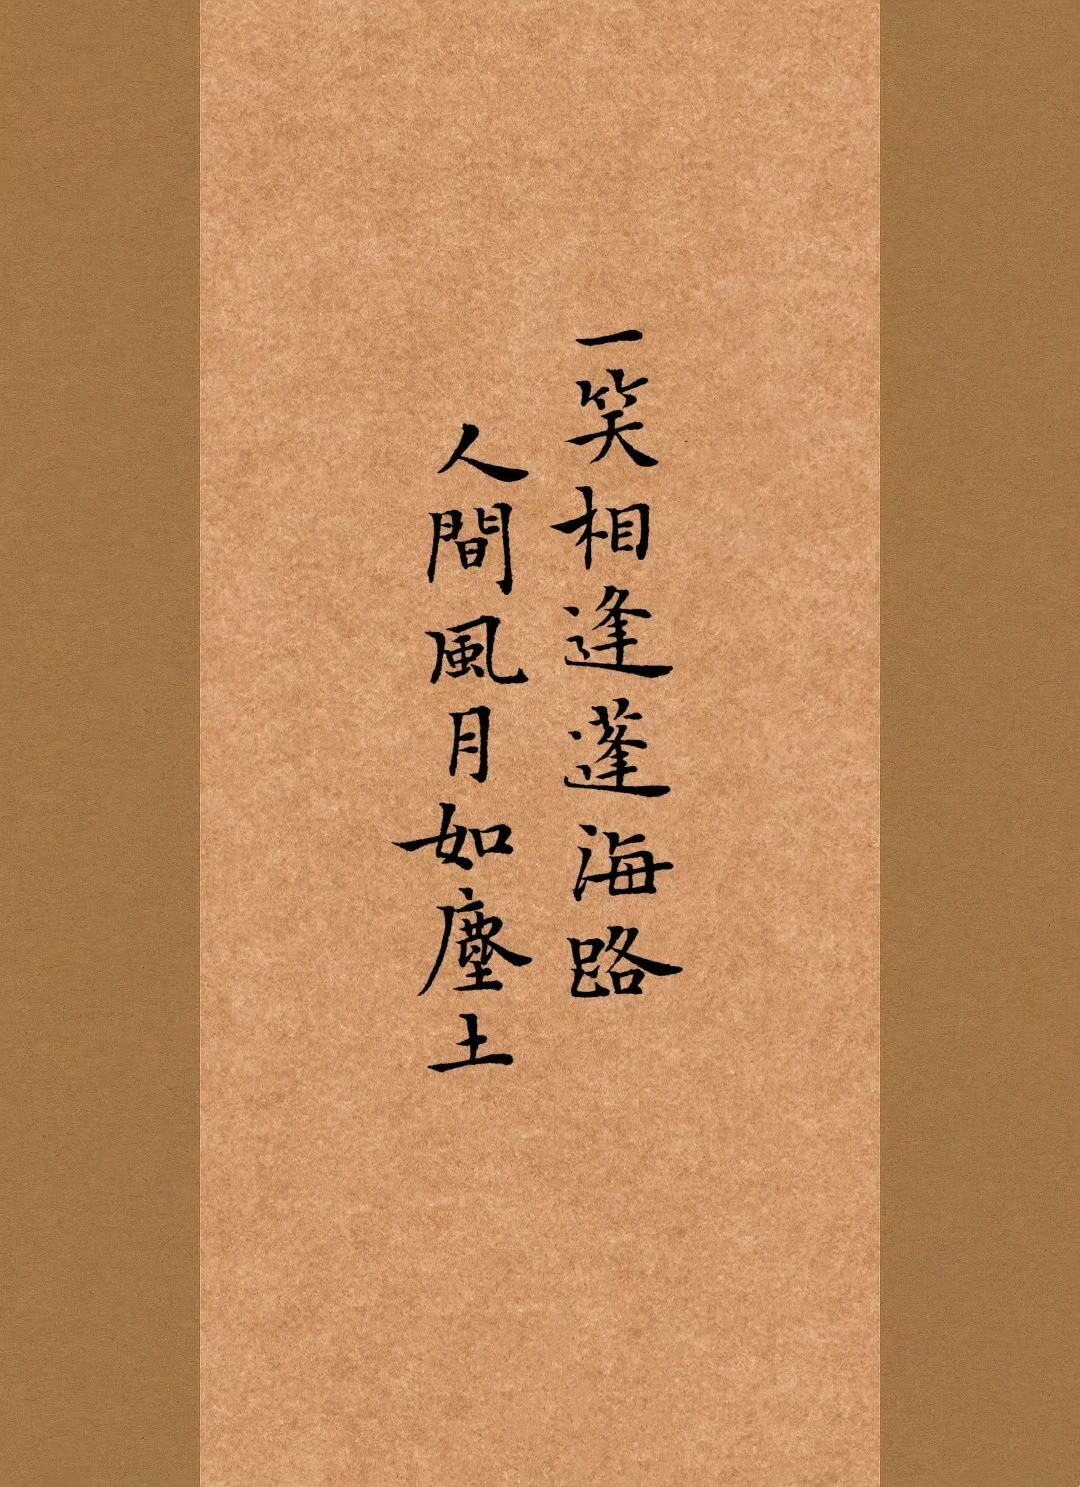 一笑相逢蓬海路
人間風月如塵土